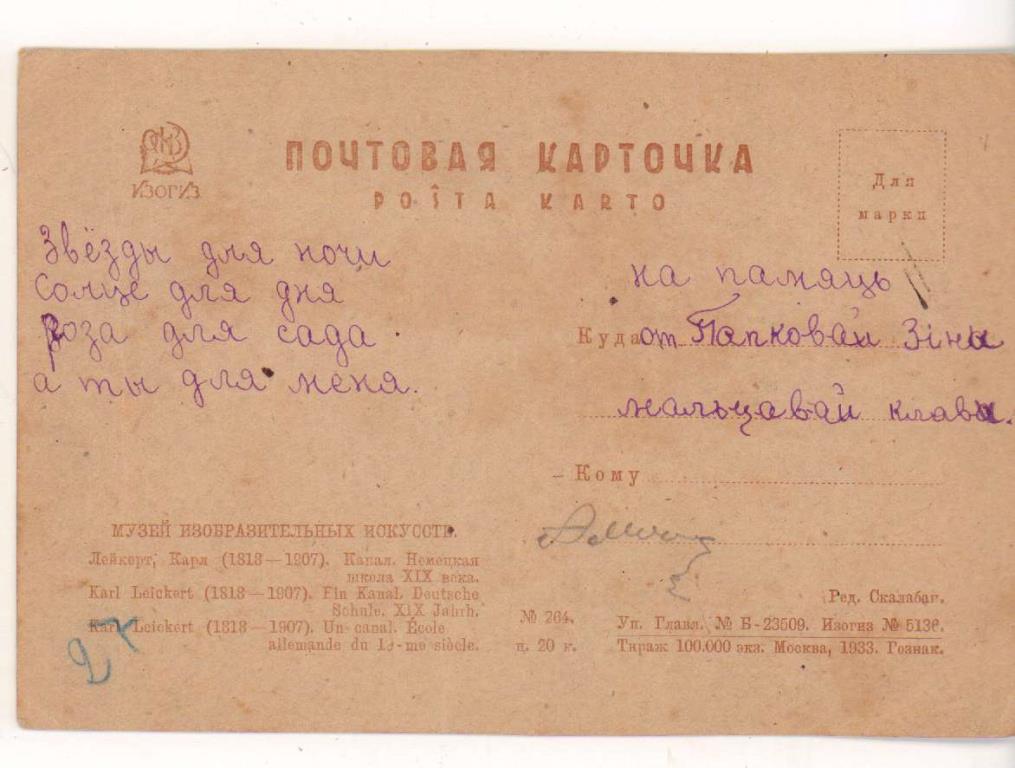 ИЗОГИЗ
ПОЧТОВАЯ КАРТОЧКА
POŜTA KARTO
Для
марки
Звёзды для ночи
Солце для дня
Роза для сада
а ты для меня.
на памяць
Куда от Папковай Зіны
мальцавай клавы.
Кому
МУЗЕЙ ИЗОБРАЗИТЕЛЬНЫХ ИСКУССТВ.
Лейкерт, Карл (1818—1907). Канал. Немецкая
школа XIX века.
Karl Leickert (1818—1907). Ein Kanal. Deutsche
Schule. XIX Jahrh.
Karl Leickert (1818—1907). Un canal. École
allemande du 19-me siècle.
27
№ 264.
ц. 20 к.
Ред. Скалабан.
Уп. Главл. № Б-23509. Изогиз № 5136.
Тираж 100.000 экз. Москва, 1933. Гознак.